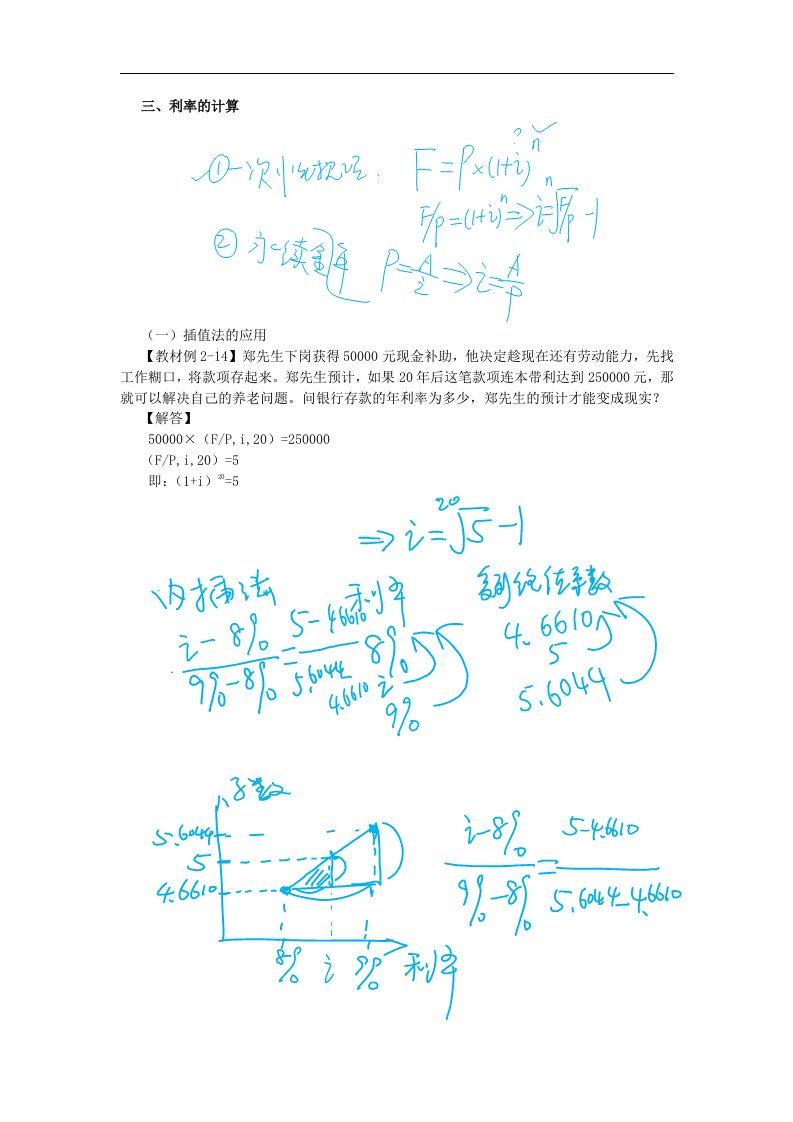 三、利率的计算
①一次性款项： F=P×(1+i)ⁿ ?
F/P=(1+i)ⁿ⇒i=ⁿ√F/P-1
② 永续金年 P=A/i⇒i=A/P
（一）插值法的应用
【教材例2-14】郑先生下岗获得50000元现金补助，他决定趁现在还有劳动能力，先找
工作糊口，将款项存起来。郑先生预计，如果20年后这笔款项连本带利达到250000元，那
就可以解决自己的养老问题。问银行存款的年利率为多少，郑先生的预计才能变成现实？
【解答】
50000×（F/P,i,20）=250000
（F/P,i,20）=5
即：（1+i）²⁰=5
⇒ i=²⁰√5-1
内插法 利率 复利终值系数
i-8%/9%-8%=5-4.6610/5.6044-4.6610
8% 4.6610
i 5
9% 5.6044
系数
5.6044
5
4.6610
8% i 9% 利率
i-8%/9%-8%=5-4.6610/5.6044-4.6610